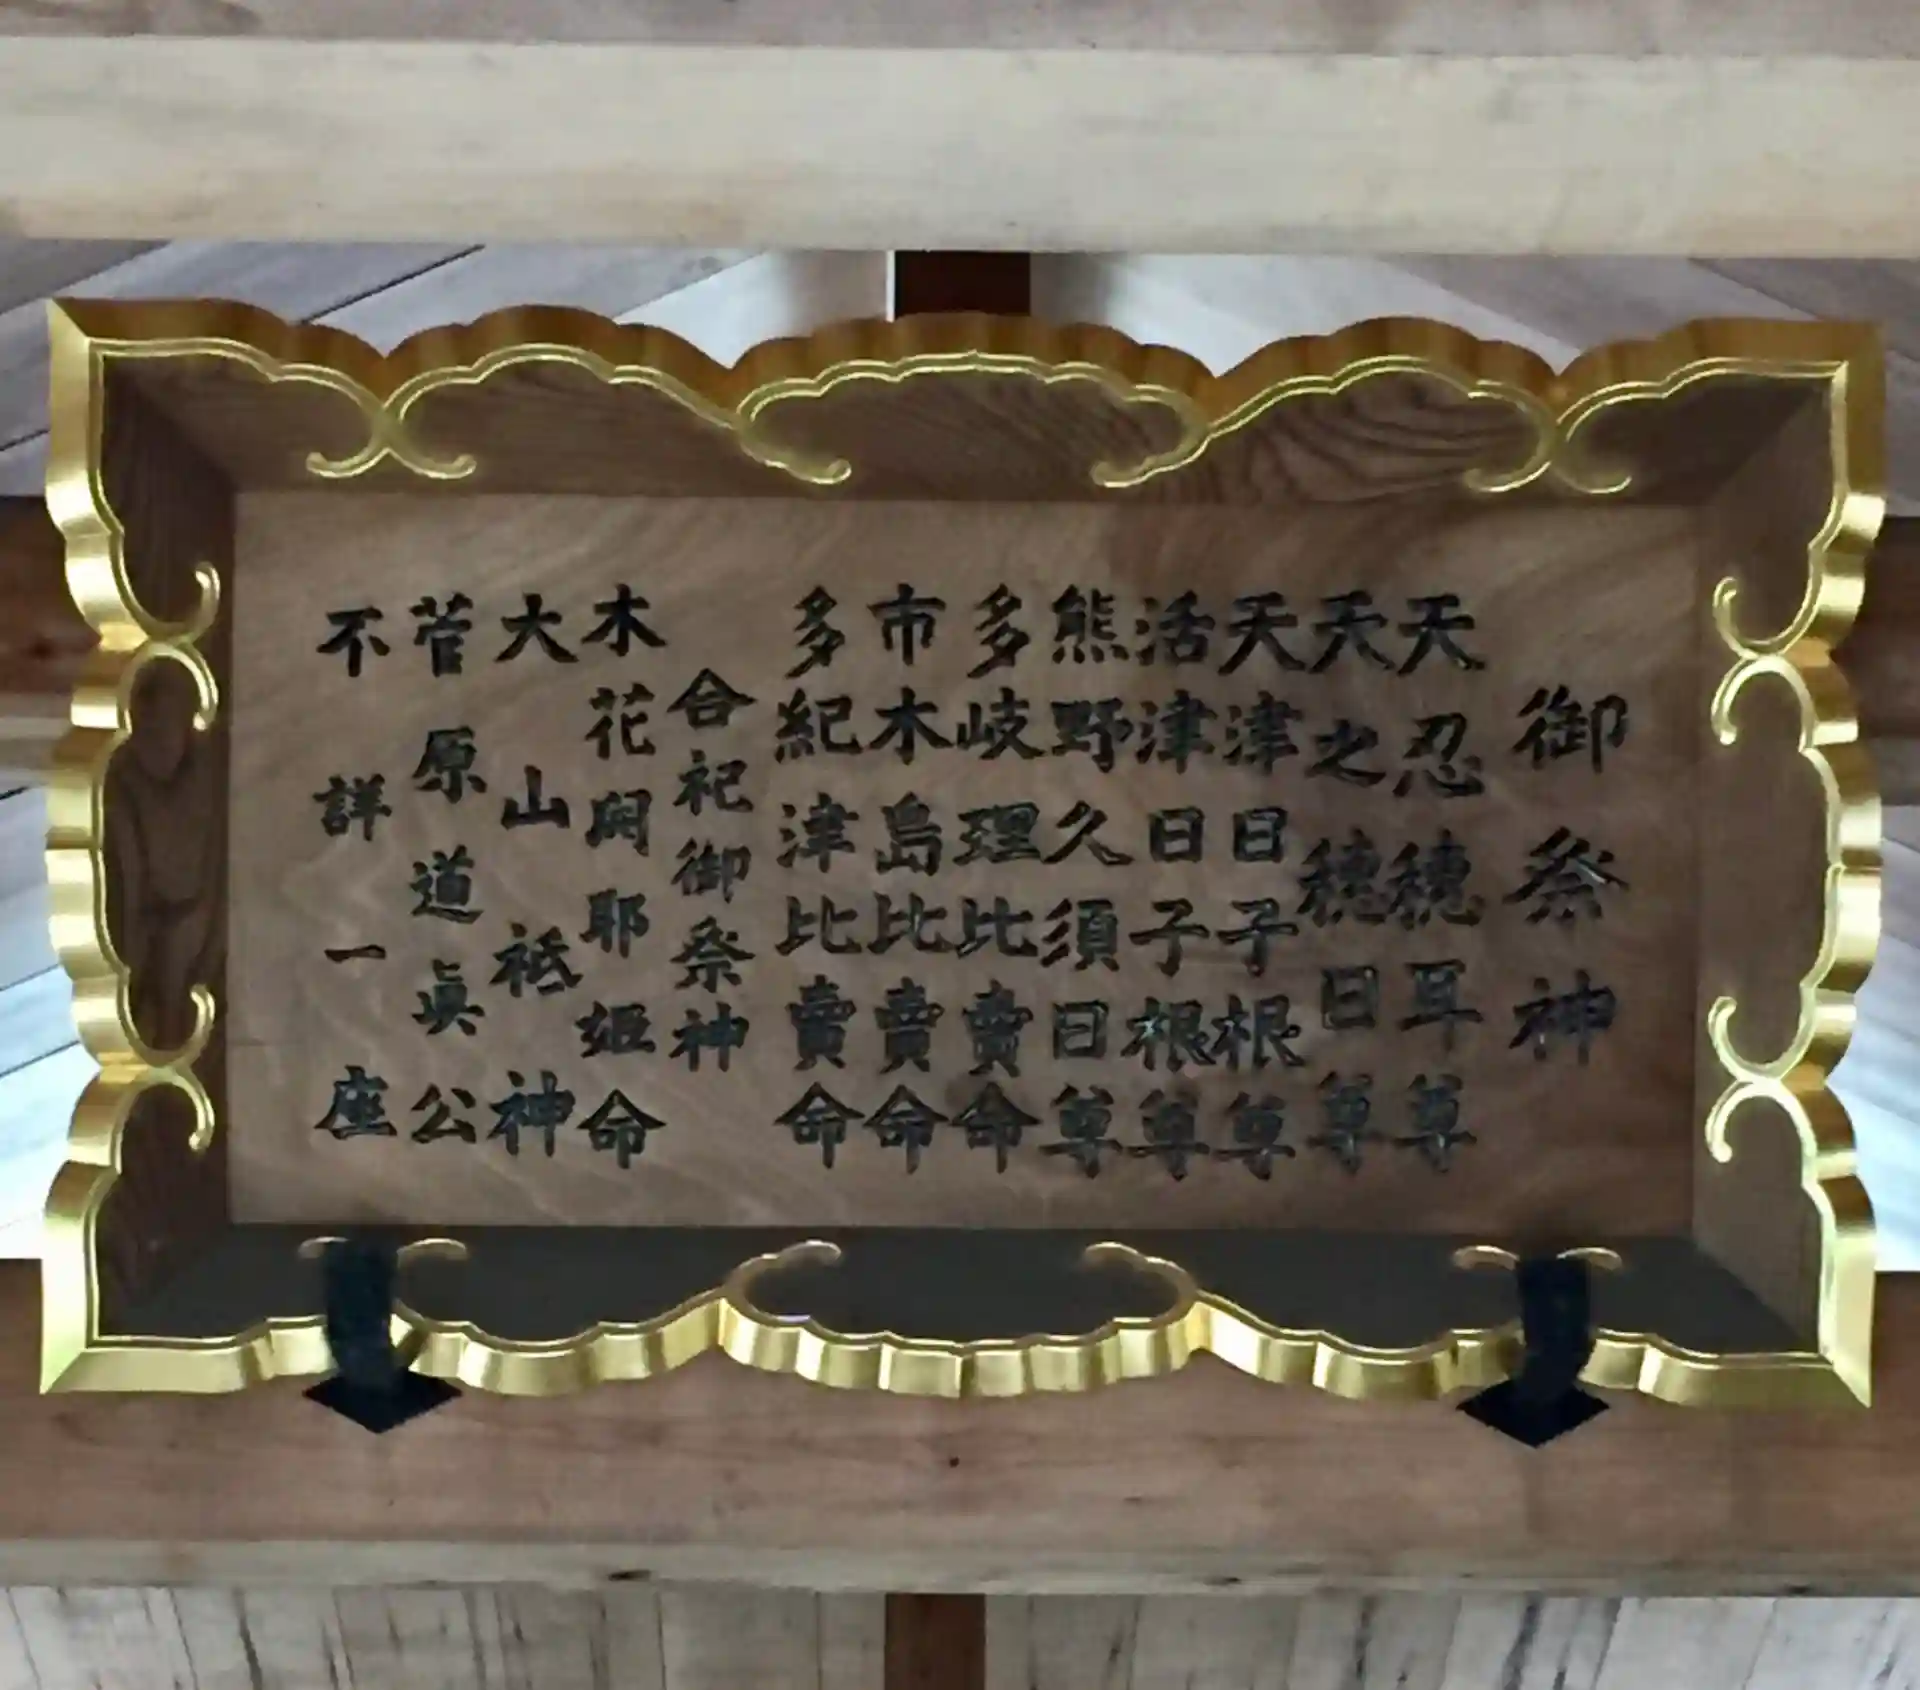 御祭神
天忍穂耳尊
天之穂日尊
天津日子根尊
活津日子根尊
熊野久須日尊
多岐理比賣命
市木島比賣命
多紀津比賣命
合祀御祭神
木花開耶姫命
大山祗神
菅原道眞公
不詳一座